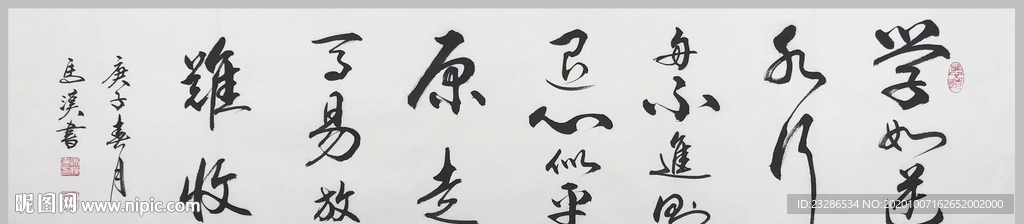 学如逆
水行
舟不進則
退心似平
原走
马易放
難收
庚子春月
馬漢書
昵图网 www.nipic.com
ID:23286534 NO:20201007162652002000